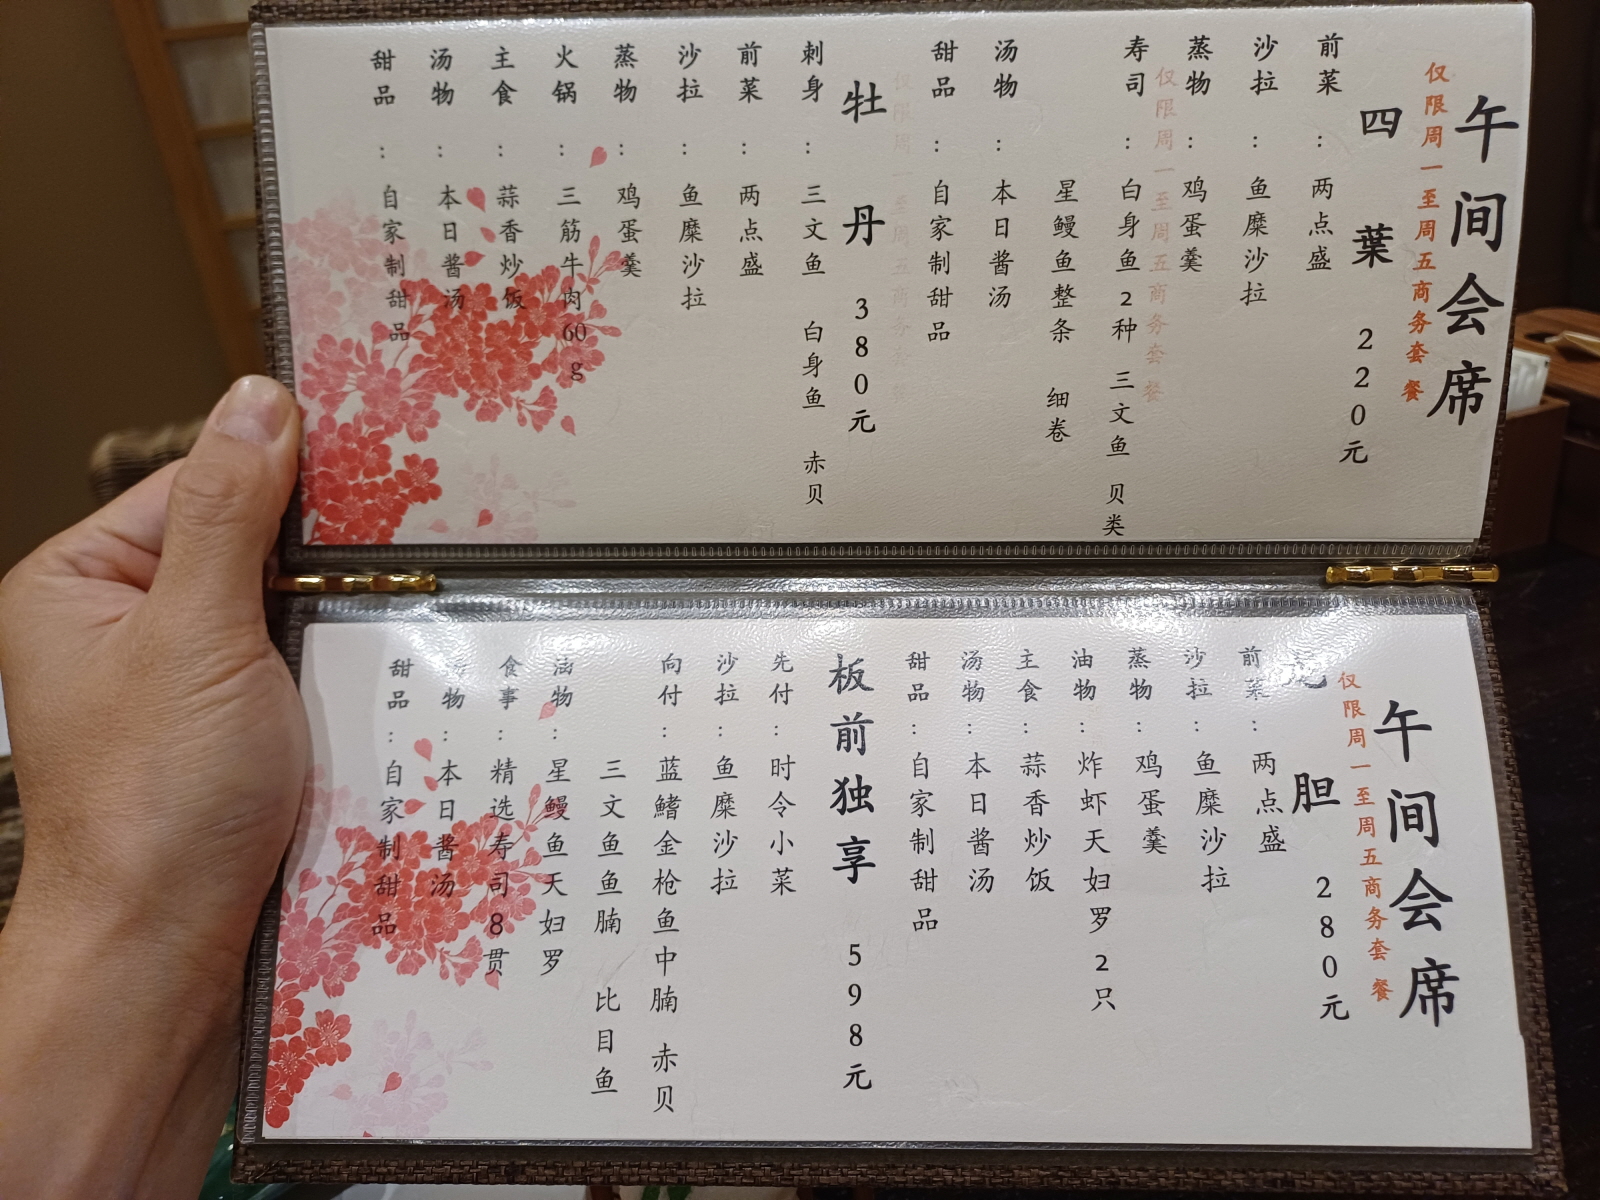 午间会席
仅限周一至周五商务套餐
四葉 220元
前菜：两点盛
沙拉：鱼糜沙拉
蒸物：鸡蛋羹
寿司：白身鱼2种 三文鱼 贝类
星鳗鱼整条 细卷
汤物：本日酱汤
甜品：自家制甜品
牡丹 380元
刺身：三文鱼 白身鱼 赤贝
前菜：两点盛
沙拉：鱼糜沙拉
蒸物：鸡蛋羹
火锅：三筋牛肉60g
主食：蒜香炒饭
汤物：本日酱汤
甜品：自家制甜品
午间会席
仅限周一至周五商务套餐
胆 280元
前菜：两点盛
沙拉：鱼糜沙拉
蒸物：鸡蛋羹
油物：炸虾天妇罗2只
主食：蒜香炒饭
汤物：本日酱汤
甜品：自家制甜品
板前独享 598元
先付：时令小菜
沙拉：鱼糜沙拉
向付：蓝鳍金枪鱼中腩 赤贝
三文鱼鱼腩 比目鱼
油物：星鳗鱼天妇罗
食事：精选寿司8贯
物：本日酱汤
甜品：自家制甜品